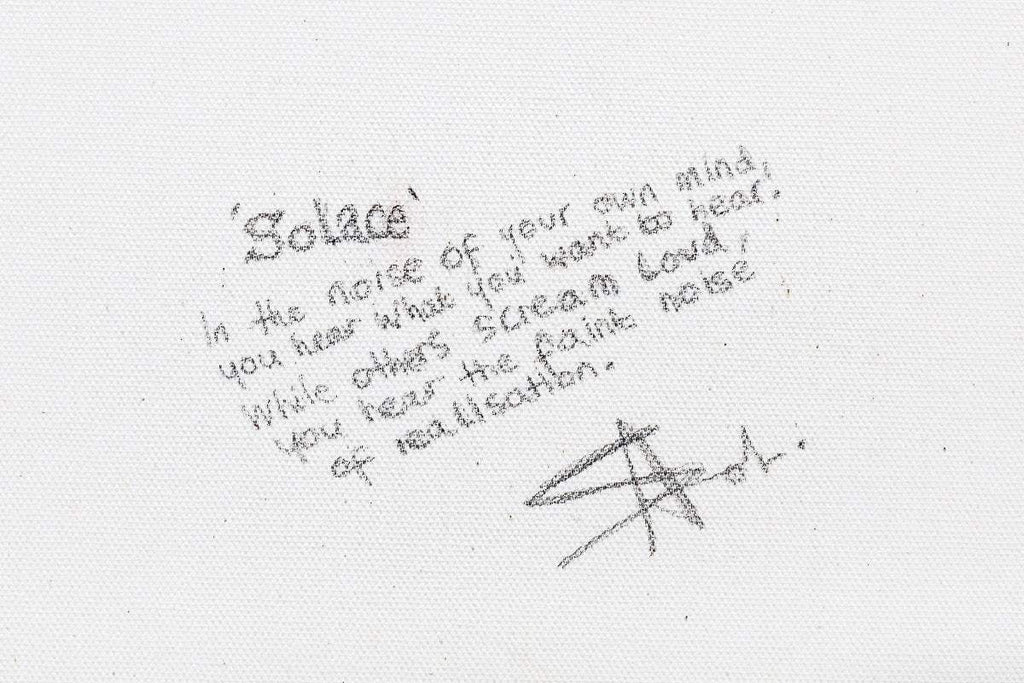 'Solace'
In the noise of your own mind,
you hear what you want to hear.
While others scream loud,
you hear the faint noise
of realisation.